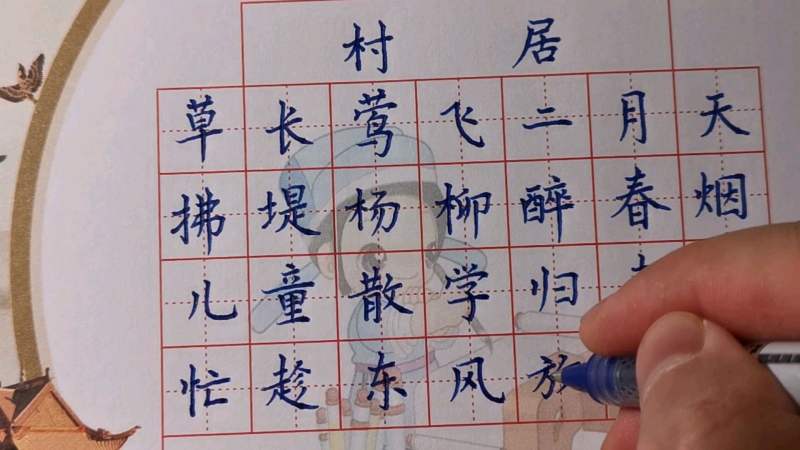 村居
草长莺飞二月天
拂堤杨柳醉春烟
儿童散学归
忙趁东风放